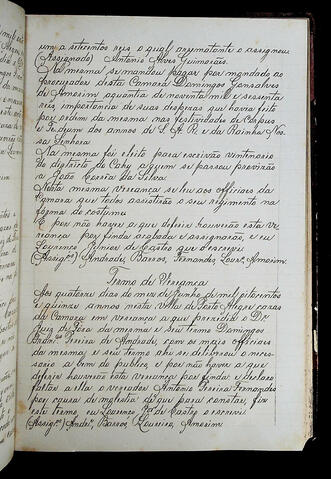 um a setecentos reis o qual arrematante o assignou
(Assignado) Antonio Alves Guimarães.
Na mesma se mandou pagar por mandado ao
Procurador desta Camara Domingos Gonsalves
de Amorim aquantia de noventa mil e sessenta
reis importancia de suas despezas que havia feito
por ordem da mesma nas festividades de Corpus
e Te deum dos annos de S. A. R. e da Rainha Nos
sa Senhora
Na mesma foi eleito para escrivão ventenario
do districto de Cahy, a quem se passou provisão
a João Pereira da Silva.
Nesta mesma vereança se leu aos officiaes da
Camara que todos assistirão o seu regimento na
forma do costume
E por não haver a que deferir houverão esta ve
reança por finda acabada e assignarão, e eu
Lourenço Junior de Castro que o escrevi
(Assigs.) Andrade, Barros, Fernandes, Lours. Amorim.
Termo de Vereança
Aos quatorze dias do mez de Junho de mil oitocentos
e quinze annos nesta villa de Porto Alegre cazas
da Camara em vereança a que prezidio o Dr
Juiz de Fora da mesma e seu termo Domingos
André Pereira de Andrade, com os mais officiaes
da mesma e seu termo ahi se deliberou o neces-
sario a bem do publico, e por não haver a que
deferir houverão esta vereança por finda e declaro
faltou a ella o vereador Antonio Pereira Fernandes
por cauza de molestia de que para constar, fiz
este termo, eu Lourenço Jr. de Castro o escrevi
(Assigs.) Andr. Barros, Loureiro, Amorim